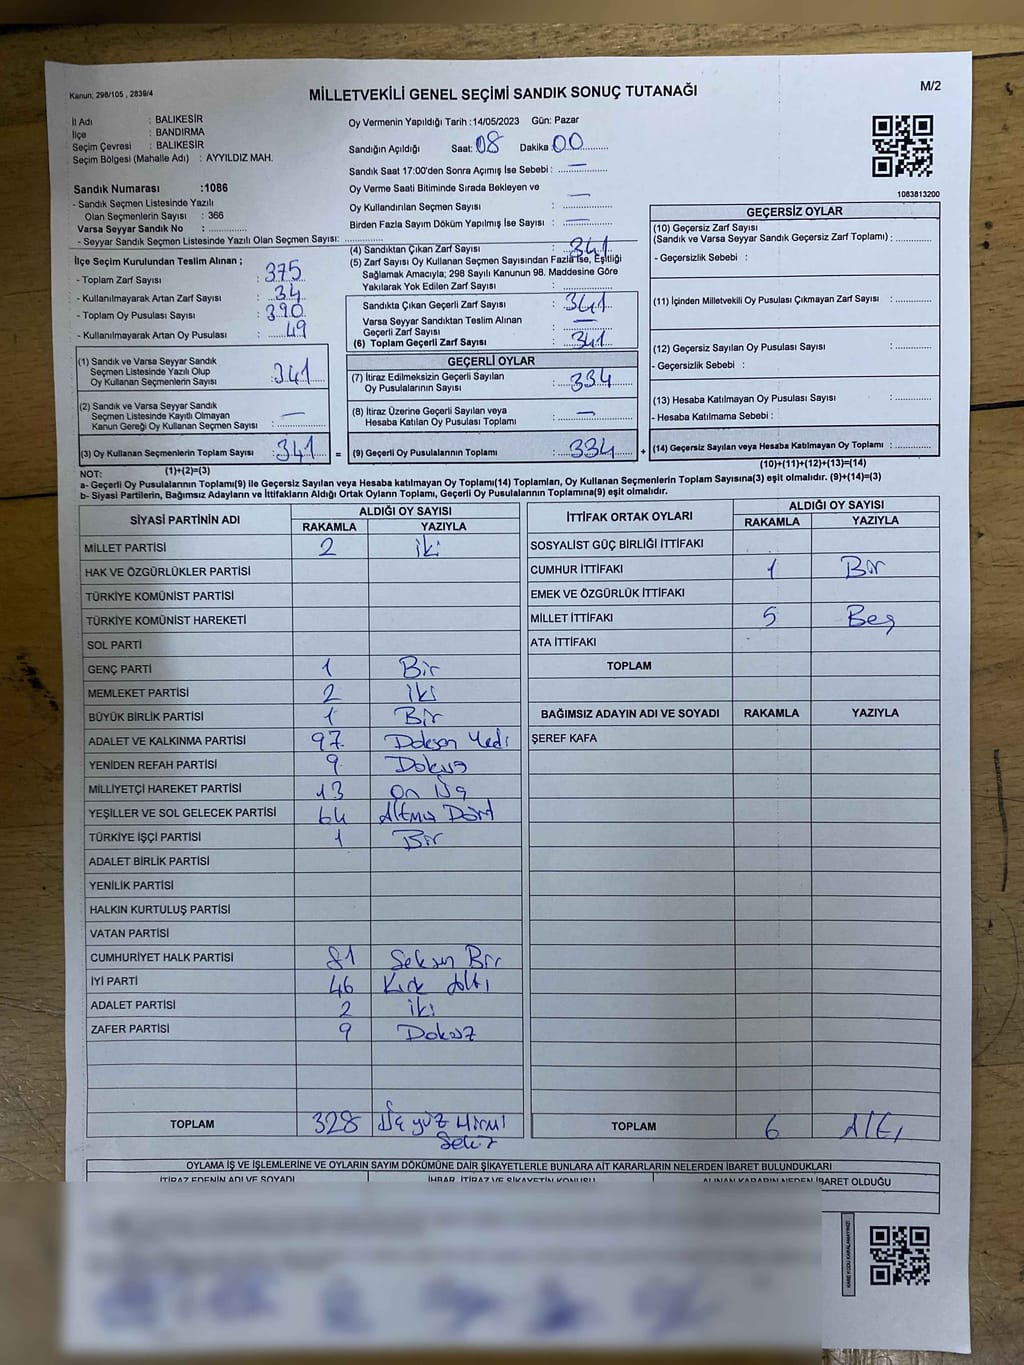 Kanun; 298/105 , 2839/4
MİLLETVEKİLİ GENEL SEÇİMİ SANDIK SONUÇ TUTANAĞI
M/2
İl Adı : BALIKESİR
İlçe : BANDIRMA
Seçim Çevresi : BALIKESİR
Seçim Bölgesi (Mahalle Adı) : AYYILDIZ MAH.
Sandık Numarası :1086
- Sandık Seçmen Listesinde Yazılı
Olan Seçmenlerin Sayısı : 366
Varsa Seyyar Sandık No : ....................
- Seyyar Sandık Seçmen Listesinde Yazılı Olan Seçmen Sayısı: ....................
Oy Vermenin Yapıldığı Tarih :14/05/2023 Gün: Pazar
Sandığın Açıldığı Saat: 08 Dakika 00
Sandık Saat 17:00'den Sonra Açımış İse Sebebi : —
Oy Verme Saati Bitiminde Sırada Bekleyen ve
Oy Kullandırılan Seçmen Sayısı : —
Birden Fazla Sayım Döküm Yapılmış İse Sayısı : —
1083813200
İlçe Seçim Kurulundan Teslim Alınan ;
- Toplam Zarf Sayısı : 375
- Kullanılmayarak Artan Zarf Sayısı : 34
- Toplam Oy Pusulası Sayısı : 390
- Kullanılmayarak Artan Oy Pusulası : 49
(1) Sandık ve Varsa Seyyar Sandık
Seçmen Listesinde Yazılı Olup
Oy Kullanan Seçmenlerin Sayısı : 341
(2) Sandık ve Varsa Seyyar Sandık
Seçmen Listesinde Kayıtlı Olmayan
Kanun Gereği Oy Kullanan Seçmen Sayısı : —
(3) Oy Kullanan Seçmenlerin Toplam Sayısı : 341 =
(4) Sandıktan Çıkan Zarf Sayısı : 341
(5) Zarf Sayısı Oy Kullanan Seçmen Sayısından Fazla İse, Eşitliği
Sağlamak Amacıyla; 298 Sayılı Kanunun 98. Maddesine Göre
Yakılarak Yok Edilen Zarf Sayısı : ....................
Sandıkta Çıkan Geçerli Zarf Sayısı : 341
Varsa Seyyar Sandıktan Teslim Alınan
Geçerli Zarf Sayısı : —
(6) Toplam Geçerli Zarf Sayısı : 341
GEÇERLİ OYLAR
(7) İtiraz Edilmeksizin Geçerli Sayılan
Oy Pusulalarının Sayısı : 334
(8) İtiraz Üzerine Geçerli Sayılan veya
Hesaba Katılan Oy Pusulası Toplamı : —
(9) Geçerli Oy Pusulalarının Toplamı : 334 +
GEÇERSİZ OYLAR
(10) Geçersiz Zarf Sayısı
(Sandık ve Varsa Seyyar Sandık Geçersiz Zarf Toplamı) : ............
- Geçersizlik Sebebi :
(11) İçinden Milletvekili Oy Pusulası Çıkmayan Zarf Sayısı : ............
(12) Geçersiz Sayılan Oy Pusulası Sayısı : ............
- Geçersizlik Sebebi :
(13) Hesaba Katılmayan Oy Pusulası Sayısı : ............
- Hesaba Katılmama Sebebi :
(14) Geçersiz Sayılan veya Hesaba Katılmayan Oy Toplamı : ............
NOT: (1)+(2)=(3) (10)+(11)+(12)+(13)=(14)
a- Geçerli Oy Pusulalarının Toplamı(9) ile Geçersiz Sayılan veya Hesaba katılmayan Oy Toplamı(14) Toplamları, Oy Kullanan Seçmenlerin Toplam Sayısına(3) eşit olmalıdır. (9)+(14)=(3)
b- Siyasi Partilerin, Bağımsız Adayların ve İttifakların Aldığı Ortak Oyların Toplamı, Geçerli Oy Pusulalarının Toplamına(9) eşit olmalıdır.
SİYASİ PARTİNİN ADI ALDIĞI OY SAYISI
RAKAMLA YAZIYLA
MİLLET PARTİSİ 2 iki
HAK VE ÖZGÜRLÜKLER PARTİSİ
TÜRKİYE KOMÜNİST PARTİSİ
TÜRKİYE KOMÜNİST HAREKETİ
SOL PARTİ
GENÇ PARTİ 1 Bir
MEMLEKET PARTİSİ 2 iki
BÜYÜK BİRLİK PARTİSİ 1 Bir
ADALET VE KALKINMA PARTİSİ 97 Doksan Yedi
YENİDEN REFAH PARTİSİ 9 Dokuz
MİLLİYETÇİ HAREKET PARTİSİ 13 on Üç
YEŞİLLER VE SOL GELECEK PARTİSİ 64 Altmış Dört
TÜRKİYE İŞÇİ PARTİSİ 1 Bir
ADALET BİRLİK PARTİSİ
YENİLİK PARTİSİ
HALKIN KURTULUŞ PARTİSİ
VATAN PARTİSİ
CUMHURİYET HALK PARTİSİ 81 Seksen Bir
İYİ PARTİ 46 Kırk Altı
ADALET PARTİSİ 2 iki
ZAFER PARTİSİ 9 Dokuz
TOPLAM 328 Üç yüz Yirmi
Sekiz
İTTİFAK ORTAK OYLARI ALDIĞI OY SAYISI
RAKAMLA YAZIYLA
SOSYALİST GÜÇ BİRLİĞİ İTTİFAKI
CUMHUR İTTİFAKI 1 Bir
EMEK VE ÖZGÜRLÜK İTTİFAKI
MİLLET İTTİFAKI 5 Beş
ATA İTTİFAKI
TOPLAM
BAĞIMSIZ ADAYIN ADI VE SOYADI RAKAMLA YAZIYLA
ŞEREF KAFA
TOPLAM 6 Altı
OYLAMA İŞ VE İŞLEMLERİNE VE OYLARIN SAYIM DÖKÜMÜNE DAİR ŞİKAYETLERLE BUNLARA AİT KARARLARIN NELERDEN İBARET BULUNDUKLARI
İTİRAZ EDENİN ADI VE SOYADI İHBAR, İTİRAZ VE ŞİKAYETİN KONUSU ALINAN KARARIN NEDEN İBARET OLDUĞU
KARE KODU KARALAMAYINIZ!